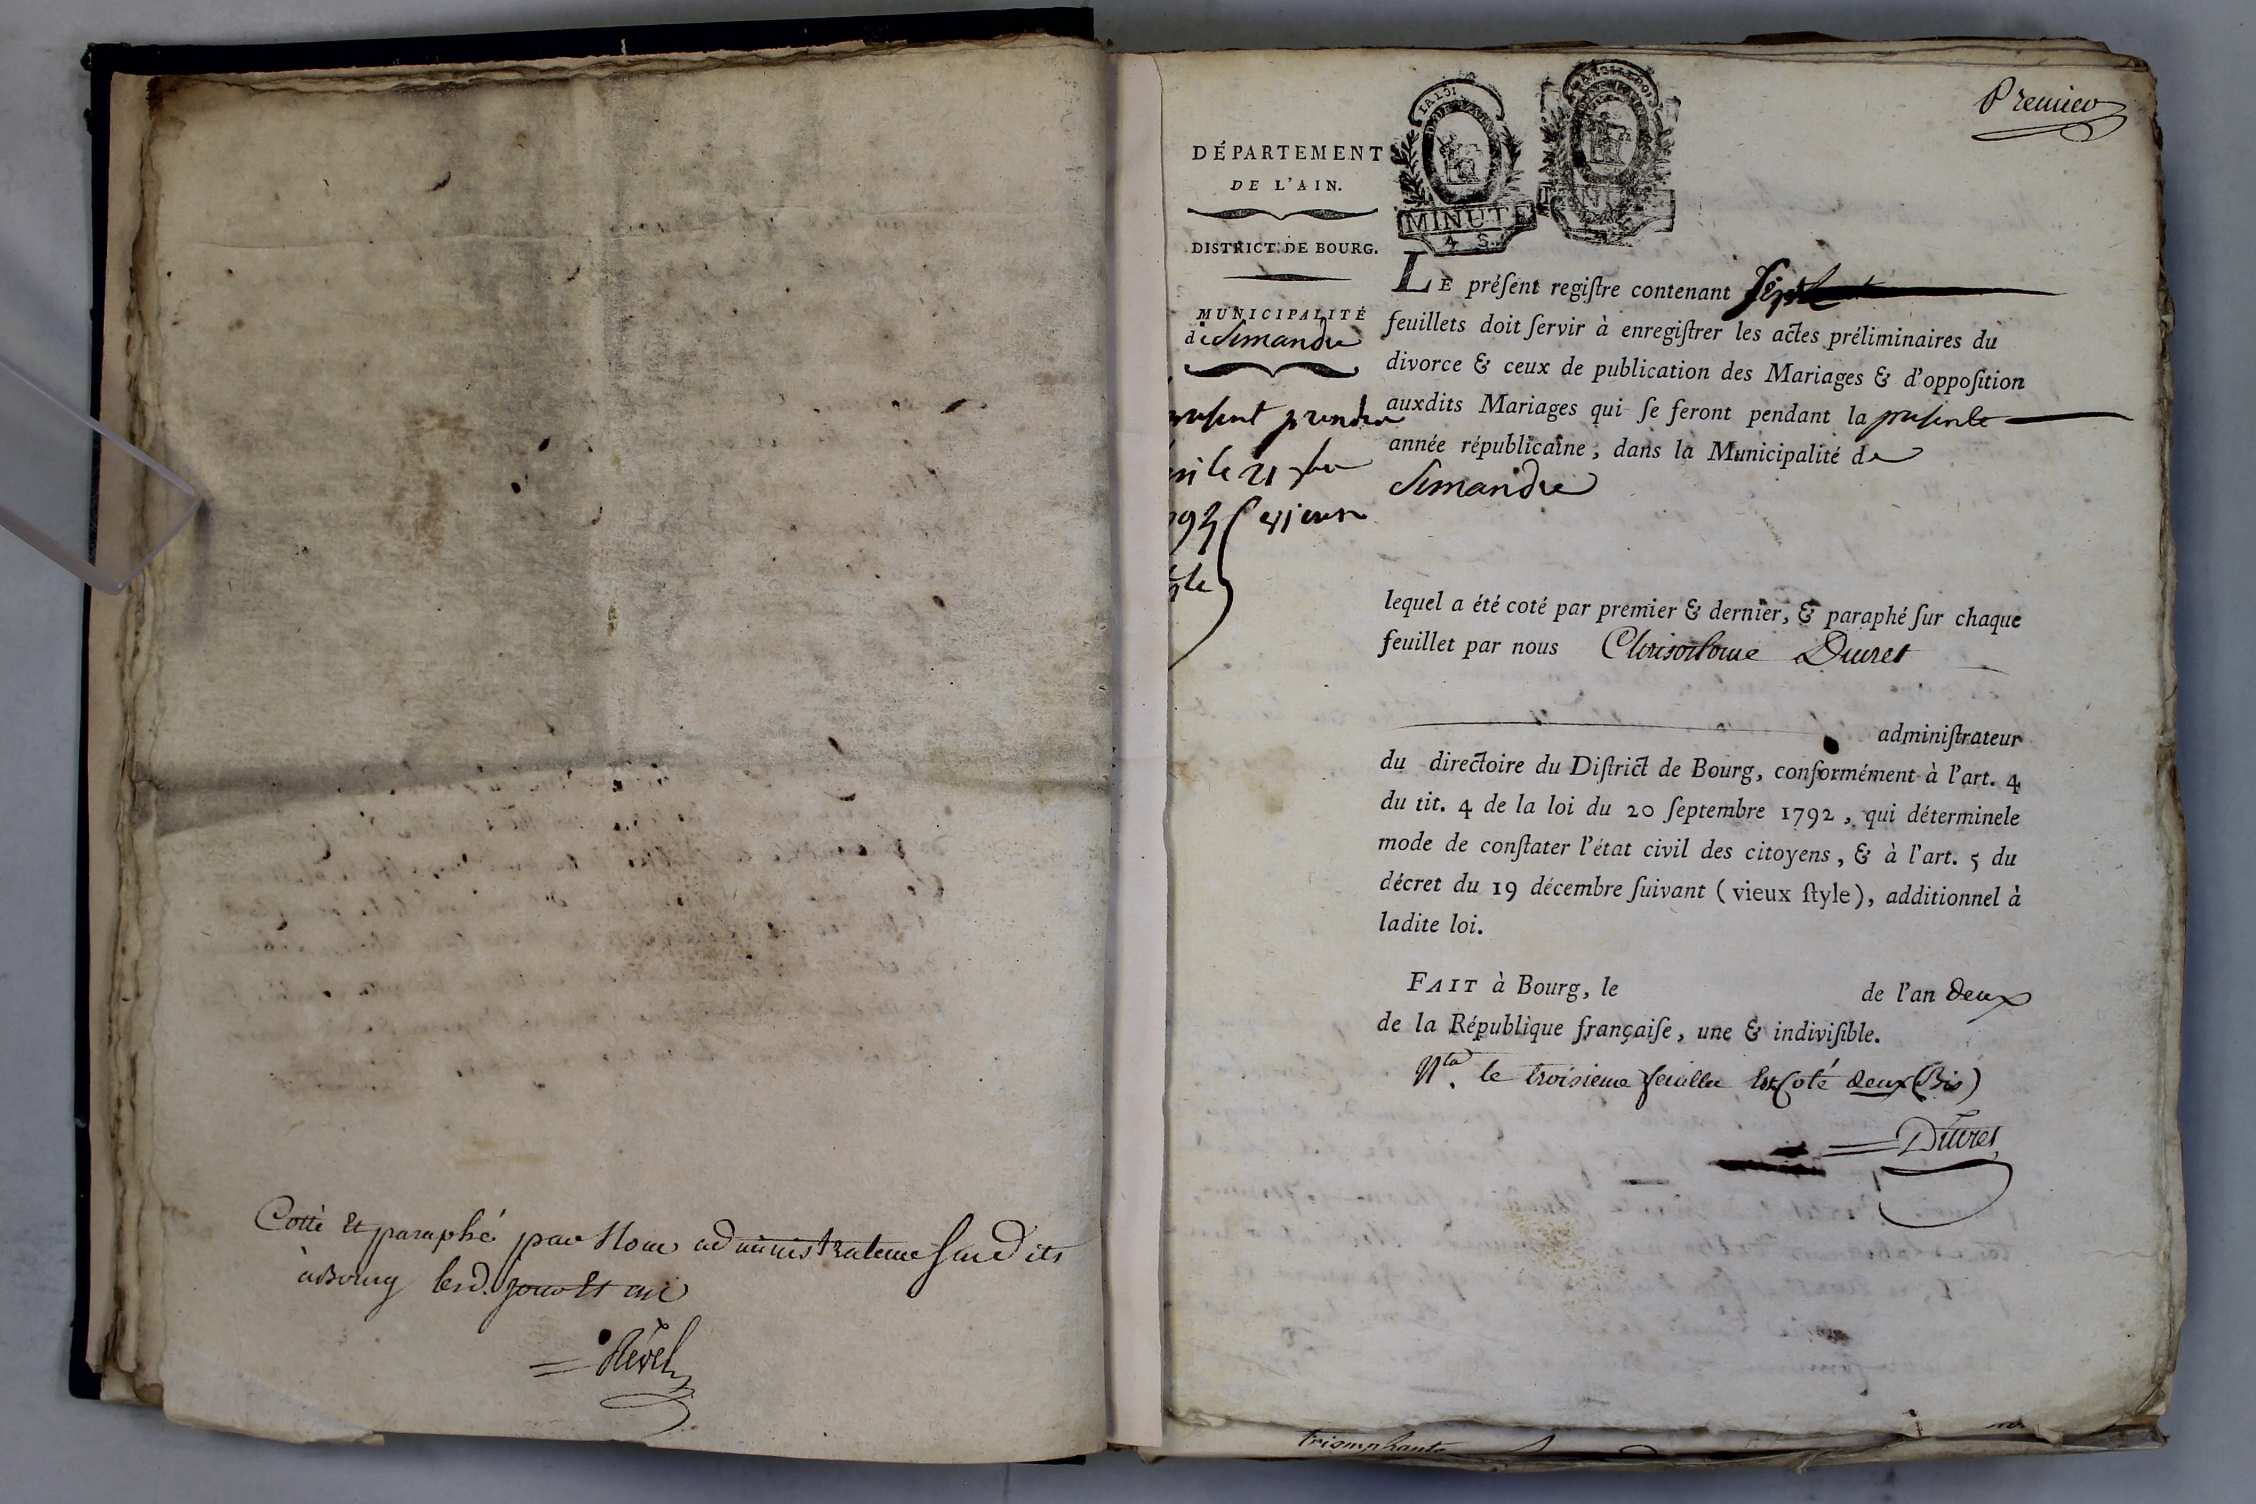 Cotté Et paraphé par Nous administrateur susdits
à Bourg lesd. jour Et an
Revel
Premier
LA LOI
MINUTE
4 S.
DÉPARTEMENT
DE L'AIN.
DISTRICT DE BOURG.
MUNICIPALITÉ
de Simandre
present prendre
le 21
style
LE préſent regiſtre contenant Sept
feuillets doit ſervir à enregiſtrer les actes préliminaires du
divorce & ceux de publication des Mariages & d'oppoſition
auxdits Mariages qui ſe feront pendant la presente
année républicaine, dans la Municipalité de
Simandre
lequel a été coté par premier & dernier, & paraphé ſur chaque
feuillet par nous Chrisostome Duret
adminiſtrateur
du directoire du Diſtrict de Bourg, conformément à l'art. 4
du tit. 4 de la loi du 20 ſeptembre 1792, qui déterminele
mode de conſtater l'état civil des citoyens, & à l'art. 5 du
décret du 19 décembre ſuivant (vieux ſtyle), additionnel à
ladite loi.
FAIT à Bourg, le de l'an deux
de la République françaiſe, une & indiviſible.
Nta. le troisieme feuillet Est Coté deux (Bis)
Duret
triomphante